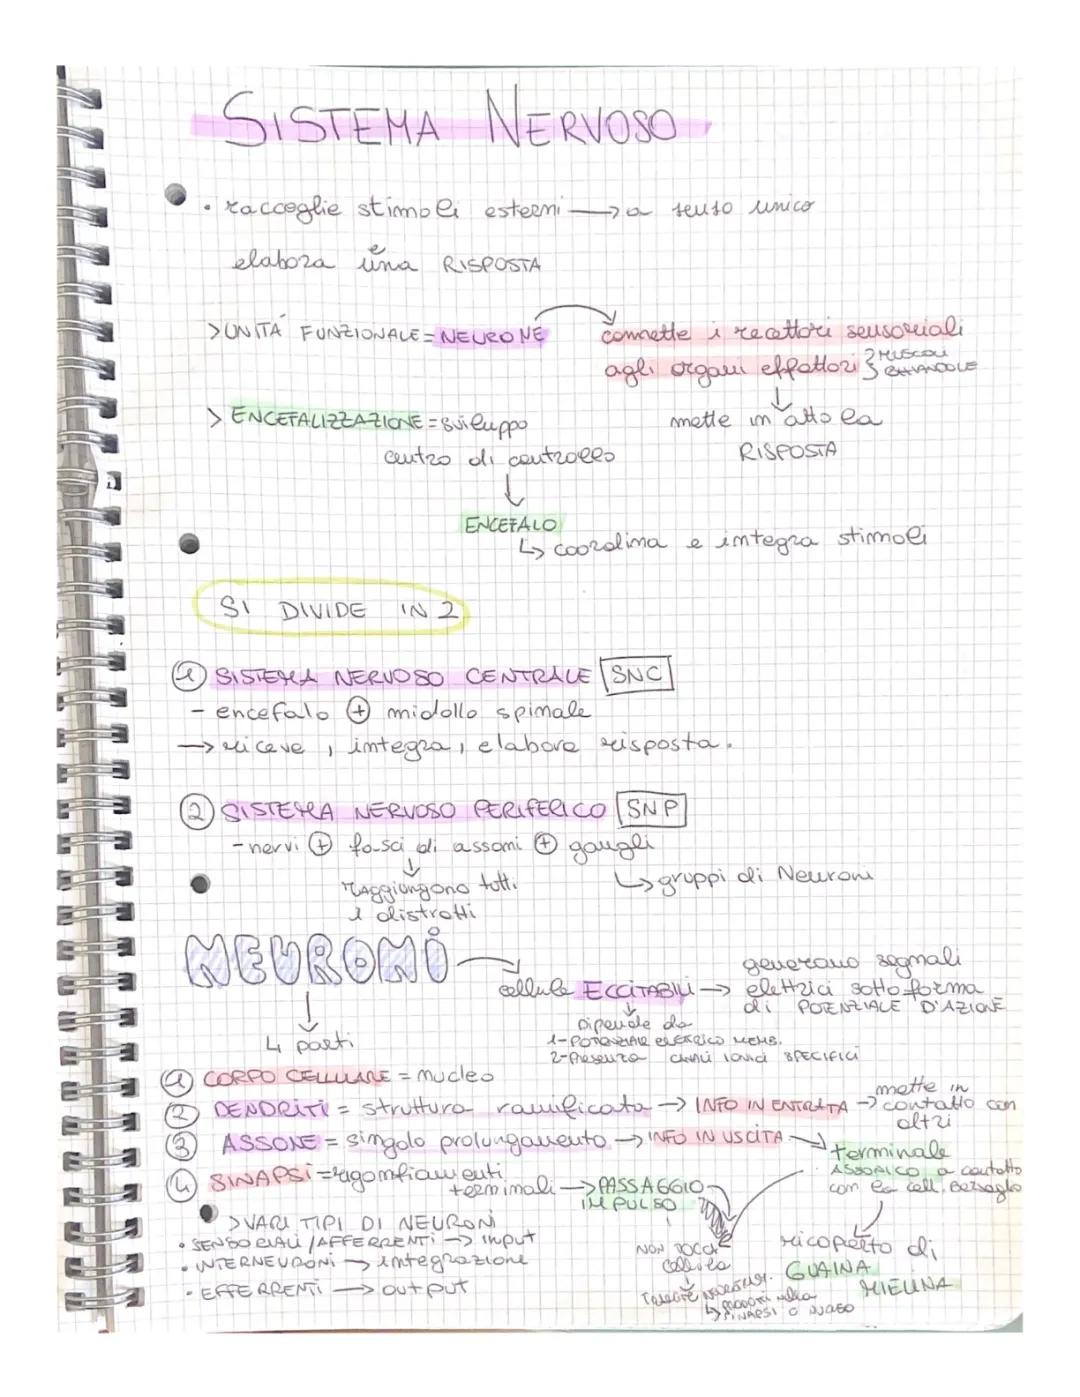 SISTEMA NERVOSO
• raccoglie stimoli esterni → a senso unico
e
elabora una RISPOSTA
> UNITÀ FUNZIONALE = NEURONE
connette i recettori sensoriali
agli organi effettori } MUSCOLI
GHIANDOLE
mette in atto la
RISPOSTA
> ENCEFALIZZAZIONE = sviluppo
centro di controllo
↓
ENCEFALO
↳ coordina e integra stimoli
SI DIVIDE IN 2
① SISTEMA NERVOSO CENTRALE SNC
- encefalo ⊕ midollo spinale
→ riceve, integra, elabora risposta.
② SISTEMA NERVOSO PERIFERICO SNP
- nervi ⊕ fasci di assoni ⊕ gangli
raggiungono tutti
i distretti
↳ gruppi di Neuroni
NEURONI
cellule ECCITABILI → generano segnali
elettrici sotto forma
di POTENZIALE D'AZIONE
Dipende da
1- POTENZIALE ELETTRICO MEMB.
2- Presenza canali ionici SPECIFICI
4 parti
① CORPO CELLULARE = nucleo
② DENDRITI = struttura ramificata → INFO IN ENTRATA → mette in
contatto con
altri
③ ASSONE = singolo prolungamento → INFO IN USCITA
terminale
ASSONICO a contatto
con la cell. Bersaglio
ricoperto di
GUAINA
MIELINA
④ SINAPSI = rigonfiamenti
terminali → PASSAGGIO
IMPULSO
NON TOCCA
cellula
↳ SINAPSI O VUOTO
> VARI TIPI DI NEURONI
• SENSORIALI / AFFERRENTI → input
• INTERNEURONI → integrazione
• EFFERRENTI → output